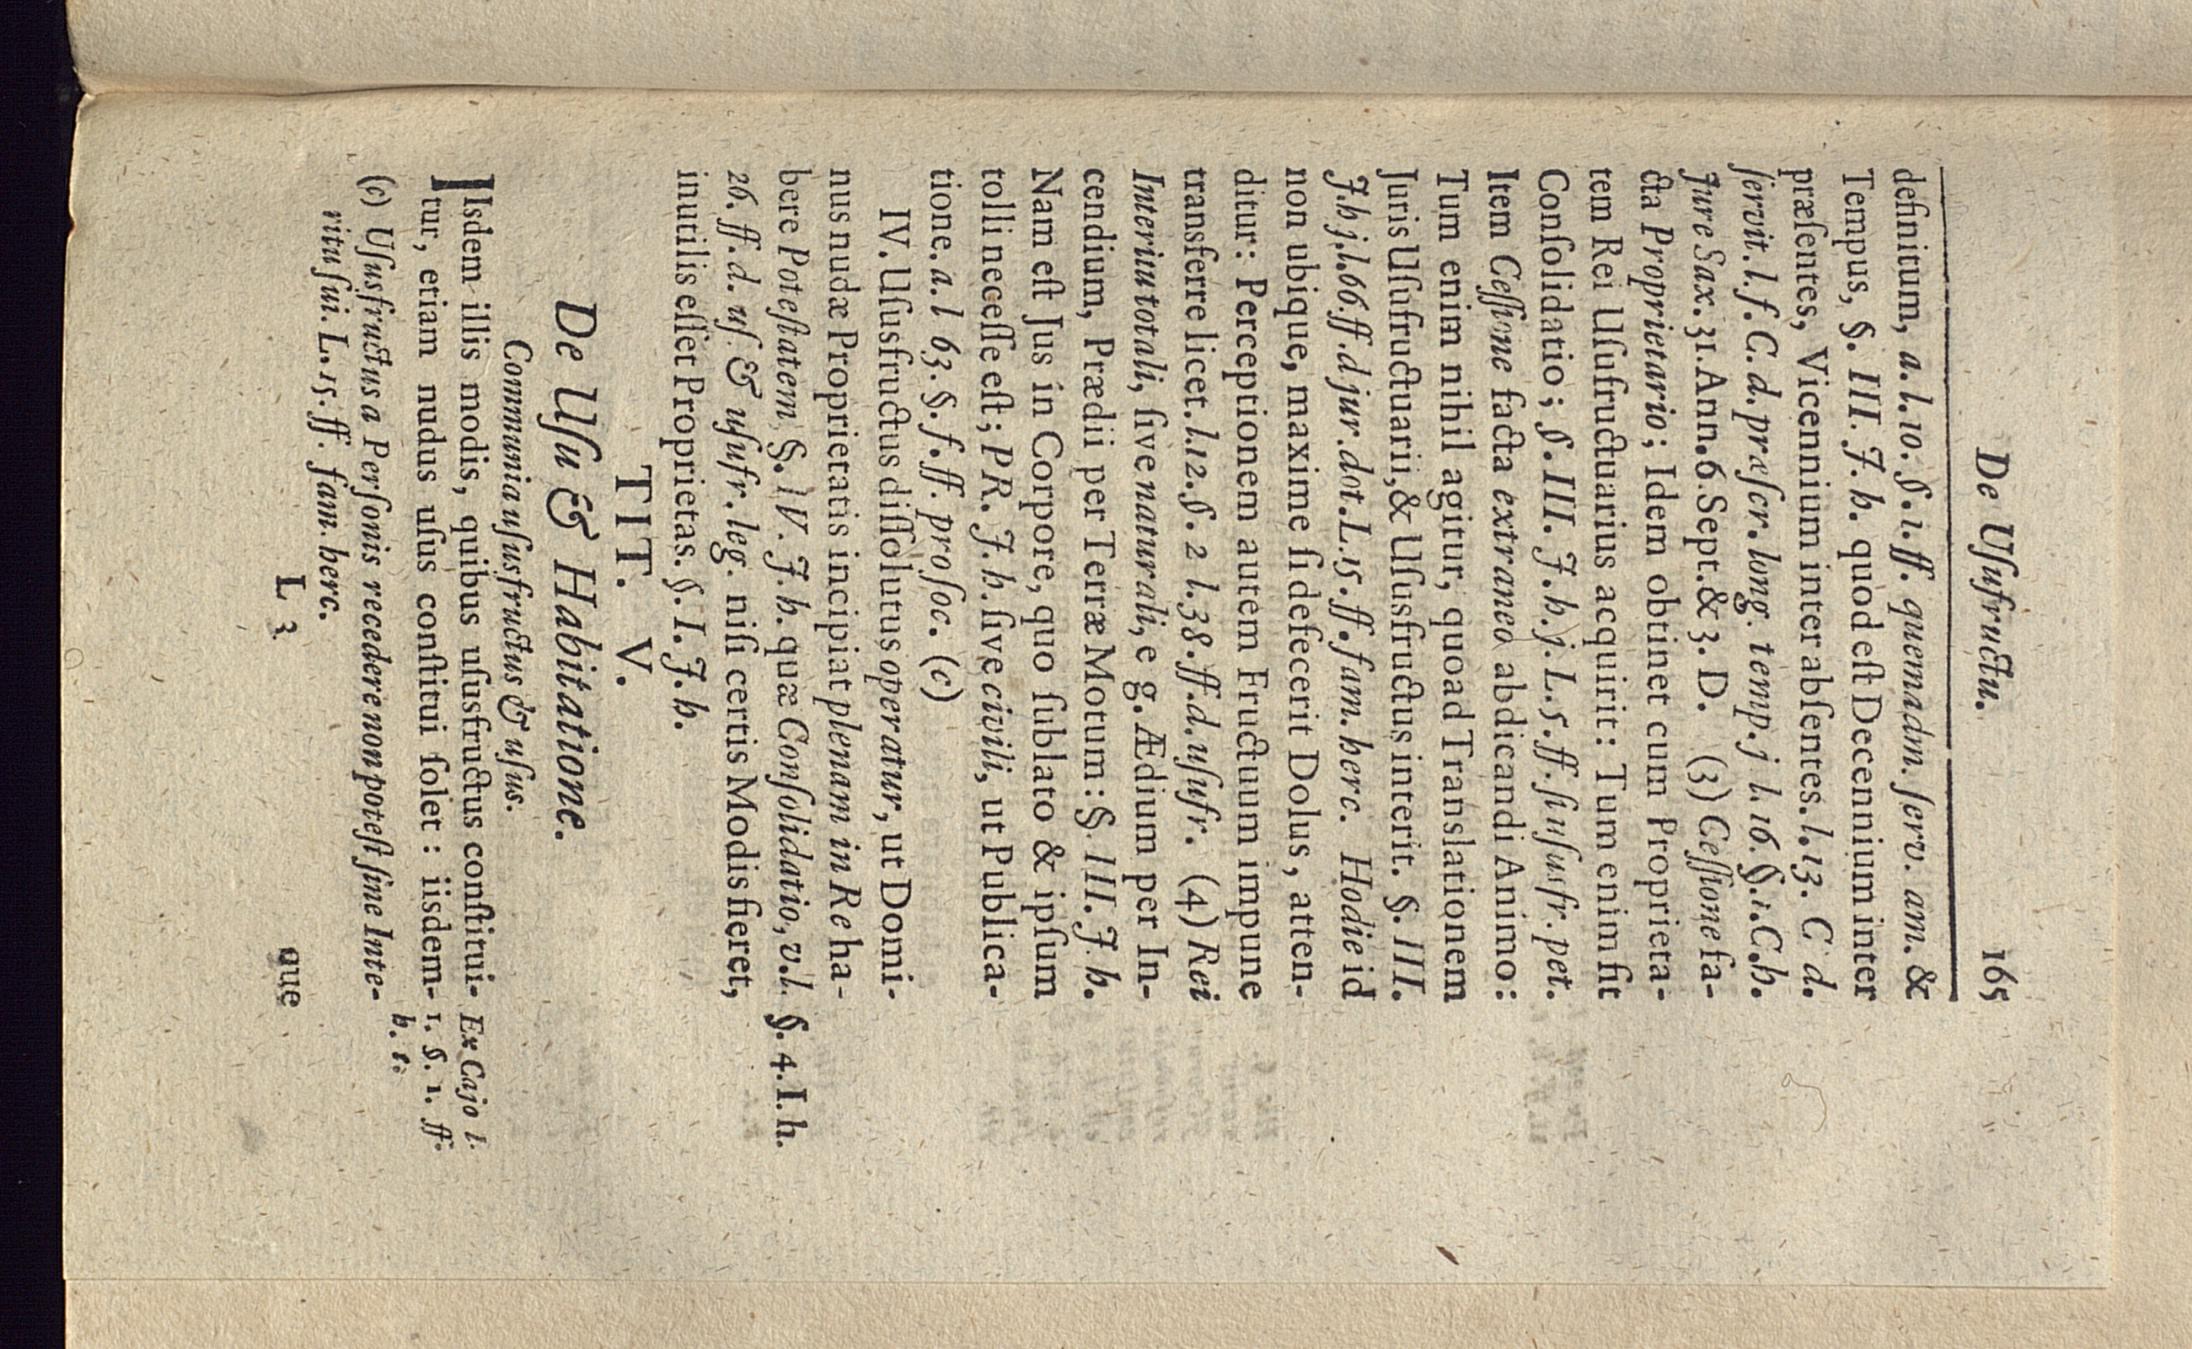 De Uſufructu. 165
definitum, a. l. 10. §. 1. ff. quemadm. ſerv. am. &
Tempus, §. III. J. h. quod eſt Decennium inter
præſentes, Vicennium inter abſentes. l. 13. C d.
ſervit. l. f. C. d. præſcr. long. temp. j l. 16. §. 1. C. h.
Jure Sax. 31. Ann. 6. Sept. & 3. D. (3) Ceſſione fa-
cta Proprietario; Idem obtinet cum Proprieta-
tem Rei Uſufructuarius acquirit: Tum enim fit
Conſolidatio; §. III. J. h. j. L. 5. ff. ſi uſusfr. pet.
Item Ceſſione facta extraneo abdicandi Animo:
Tum enim nihil agitur, quoad Translationem
Juris Uſufructuarii, & Uſusfructus interit. §. III.
J. h j. l. 66. ff. d jur. dot. L. 15. ff. fam. herc. Hodie id
non ubique, maxime ſi defecerit Dolus, atten-
ditur: Perceptionem autem Fructuum impune
transferre licet. l. 12. §. 2 l. 38. ff. d. uſufr. (4) Rei
Interitu totali, ſive naturali, e g. Ædium per In-
cendium, Prædii per Terræ Motum: §. III. J. h.
Nam eſt Jus in Corpore, quo ſublato & ipſum
tolli neceſſe eſt; PR. J. h. ſive civili, ut Publica-
tione. a. l 63. §. f. ff. pro ſoc. (c)
IV. Uſusfructus diſſolutus operatur, ut Domi-
nus nudæ Proprietatis incipiat plenam in Re ha-
bere Poteſtatem §. IV. J. h. quæ Conſolidatio, v. l. §. 4. I. h.
26. ff. d. uſ. & uſufr. leg. niſi certis Modis fieret,
inutilis eſſet Proprietas. §. I. J. h.
TIT. V.
De Uſu & Habitatione.
Communia uſusfructus & uſus.
IIsdem illis modis, quibus uſusfructus conſtitui- Ex Cajo l.
tur, etiam nudus uſus conſtitui ſolet: iisdem- 1. §. 1. ff.
h. t.
(c) Uſusfructus a Perſonis recedere non poteſt ſine Inte-
ritu ſui. L. 15. ff. fam. herc.
L 3 que